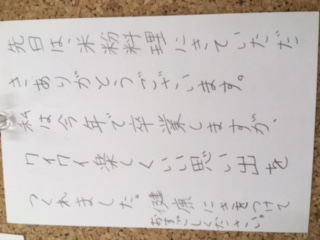 先日は、米粉料理にきていただ
きありがとうございます。
私は今年で卒業しますが、
ワイワイ楽しくいい思い出を
つくれました。健康にきをつけて